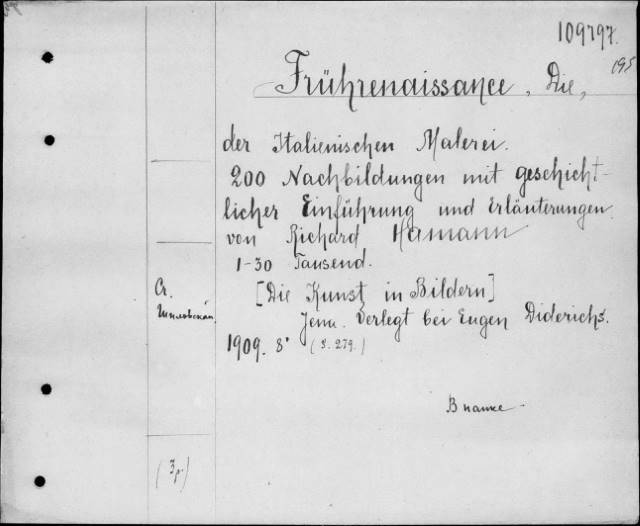 109797.
195
Frührenaissance, Die,
der Italienischen Malerei.
200 Nachbildungen mit geschicht-
licher Einführung und Erläuterungen
von Richard Hamann
1-30 Tausend.
[Die Kunst in Bildern]
Jena. Verlegt bei Eugen Diderichs.
1909. 8° (S. 279.)
Ст.
Шиловская.
В папке
(3 р.)